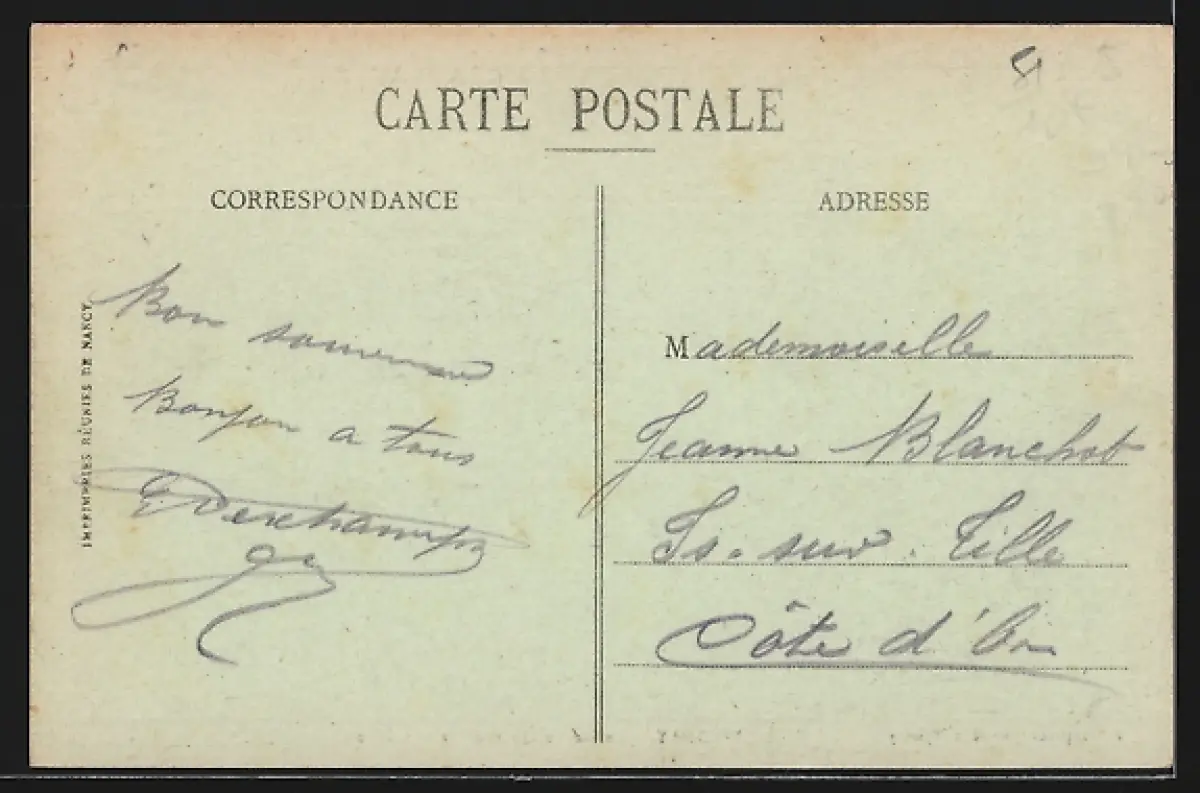 CARTE POSTALE
CORRESPONDANCE
Bon souvenir
Bonjou a tous
E Deschamps
IMPRIMERIES RÉUNIES DE NANCY
ADRESSE
Mademoiselle
Jeanne Blanchot
Is-sur-Tille
Côte d'Or